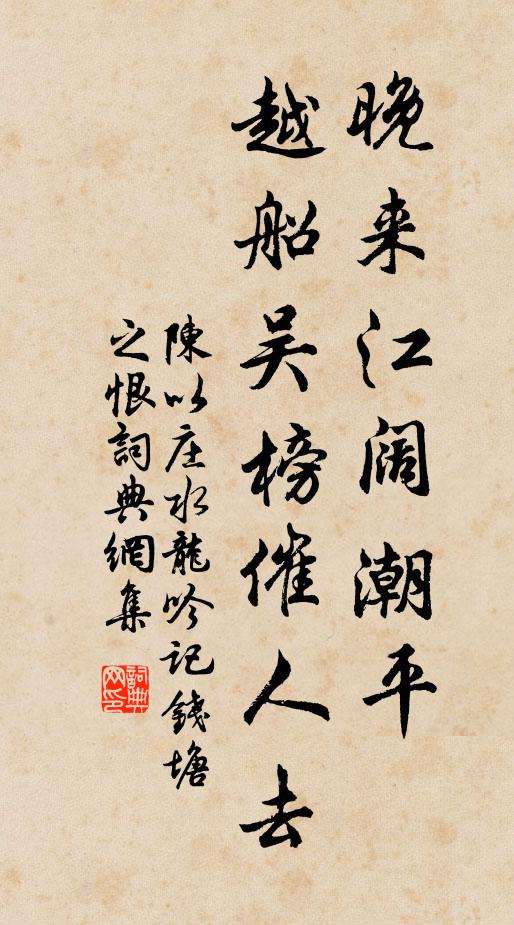 晚来江阔潮平
越船吴榜催人去
陳以庄水龍吟记錢塘
之恨詞典網集
詞典网印